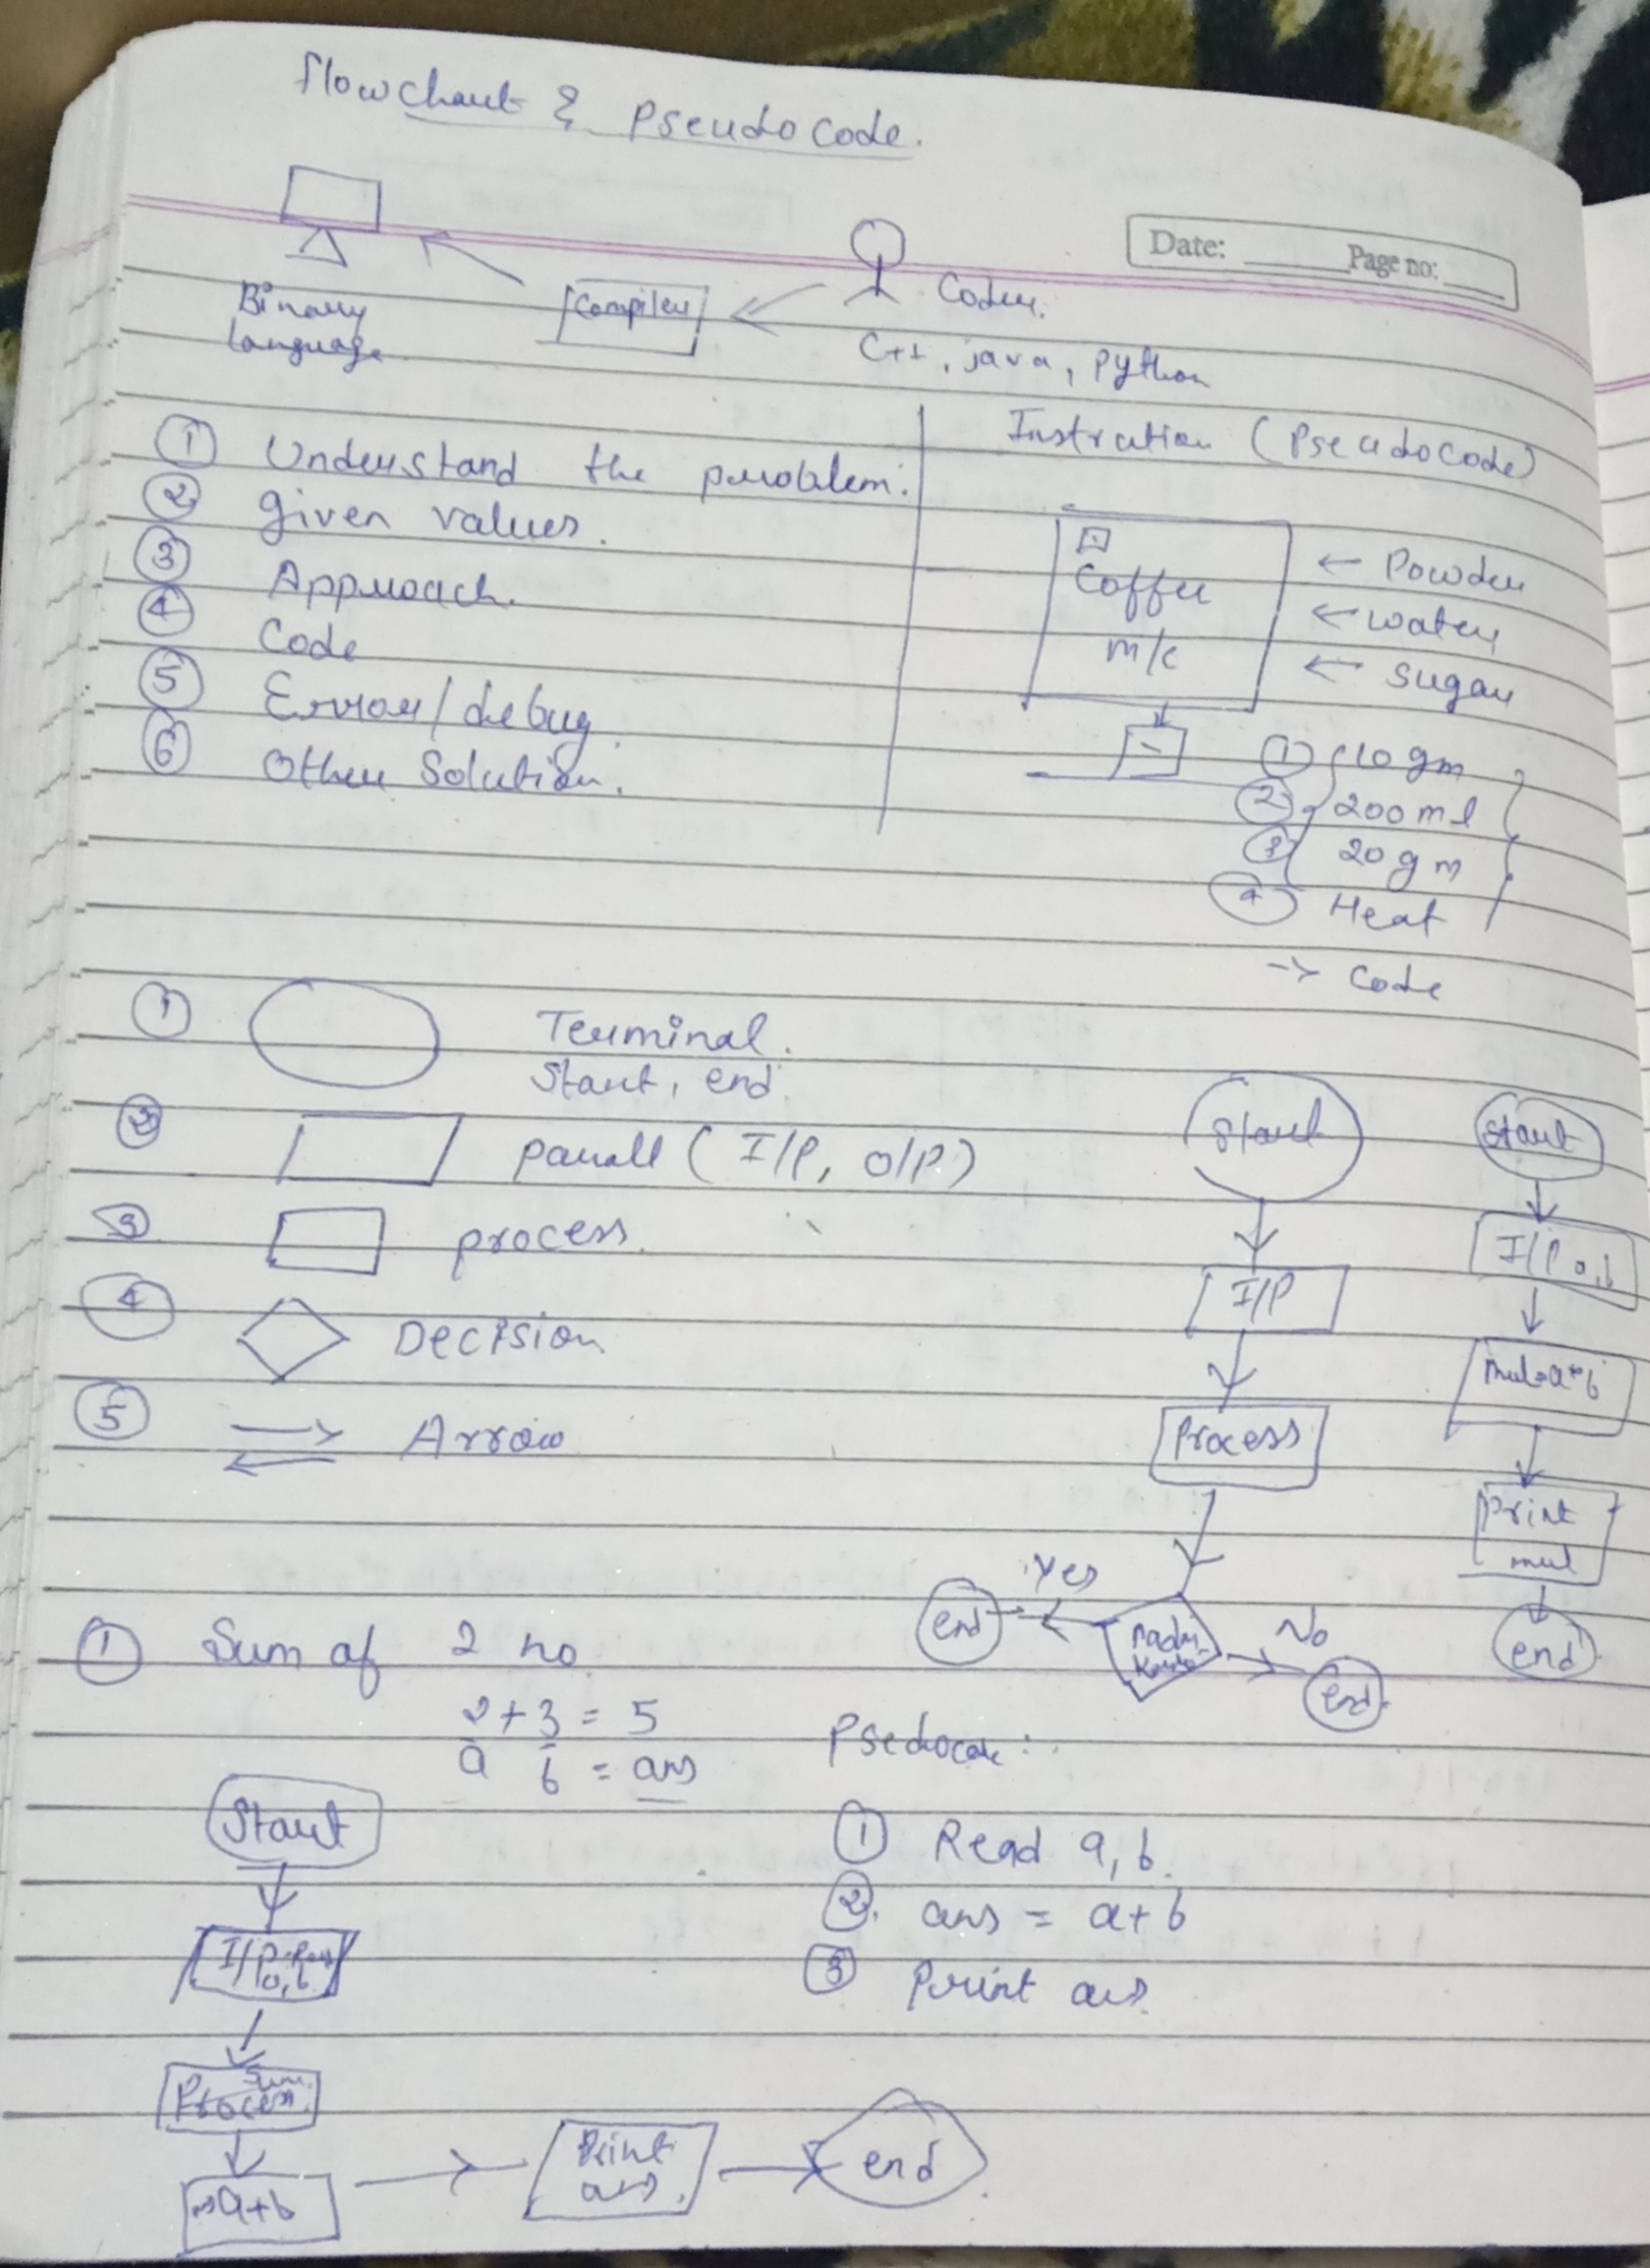 flowchart & Pseudo code.
Date: Page no:
Binary
Language
Compiler
Coder.
C++, java, Python
① Understand the problem.
② given values.
③ Approach.
④ Code
⑤ Error/debug
⑥ Other Solution.
Instration (Pseudocode)
Coffee
m/c
← Powder
← water
← sugar
① 10 gm
② 200 ml
③ 20 gm
④ Heat
-> Code
① Terminal.
Start, end
② parall (I/P, O/P)
③ process.
④ Decision
⑤ Arrow
Start
I/P
Process
Yes
No
end
end
Start
I/P a,b
mul=a*b
Print
mul
end
① Sum of 2 no
2+3 = 5
a b = ans
Start
I/P
a, b
Sum.
Process.
a+b
Print
ans.
end
Psedocode:
① Read a, b.
② ans = a+b
③ Print ans.